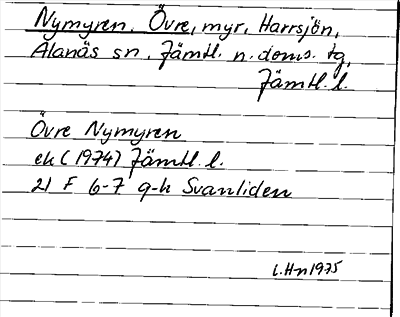 Nymyren, Övre, myr, Harrsjön,
Alanäs sn, Jämtl. n. doms. tg,
Jämtl. l.
Övre Nymyren
ek (1974) Jämtl. l.
21 F 6-7 g-h Svanliden
L.H-n 1975